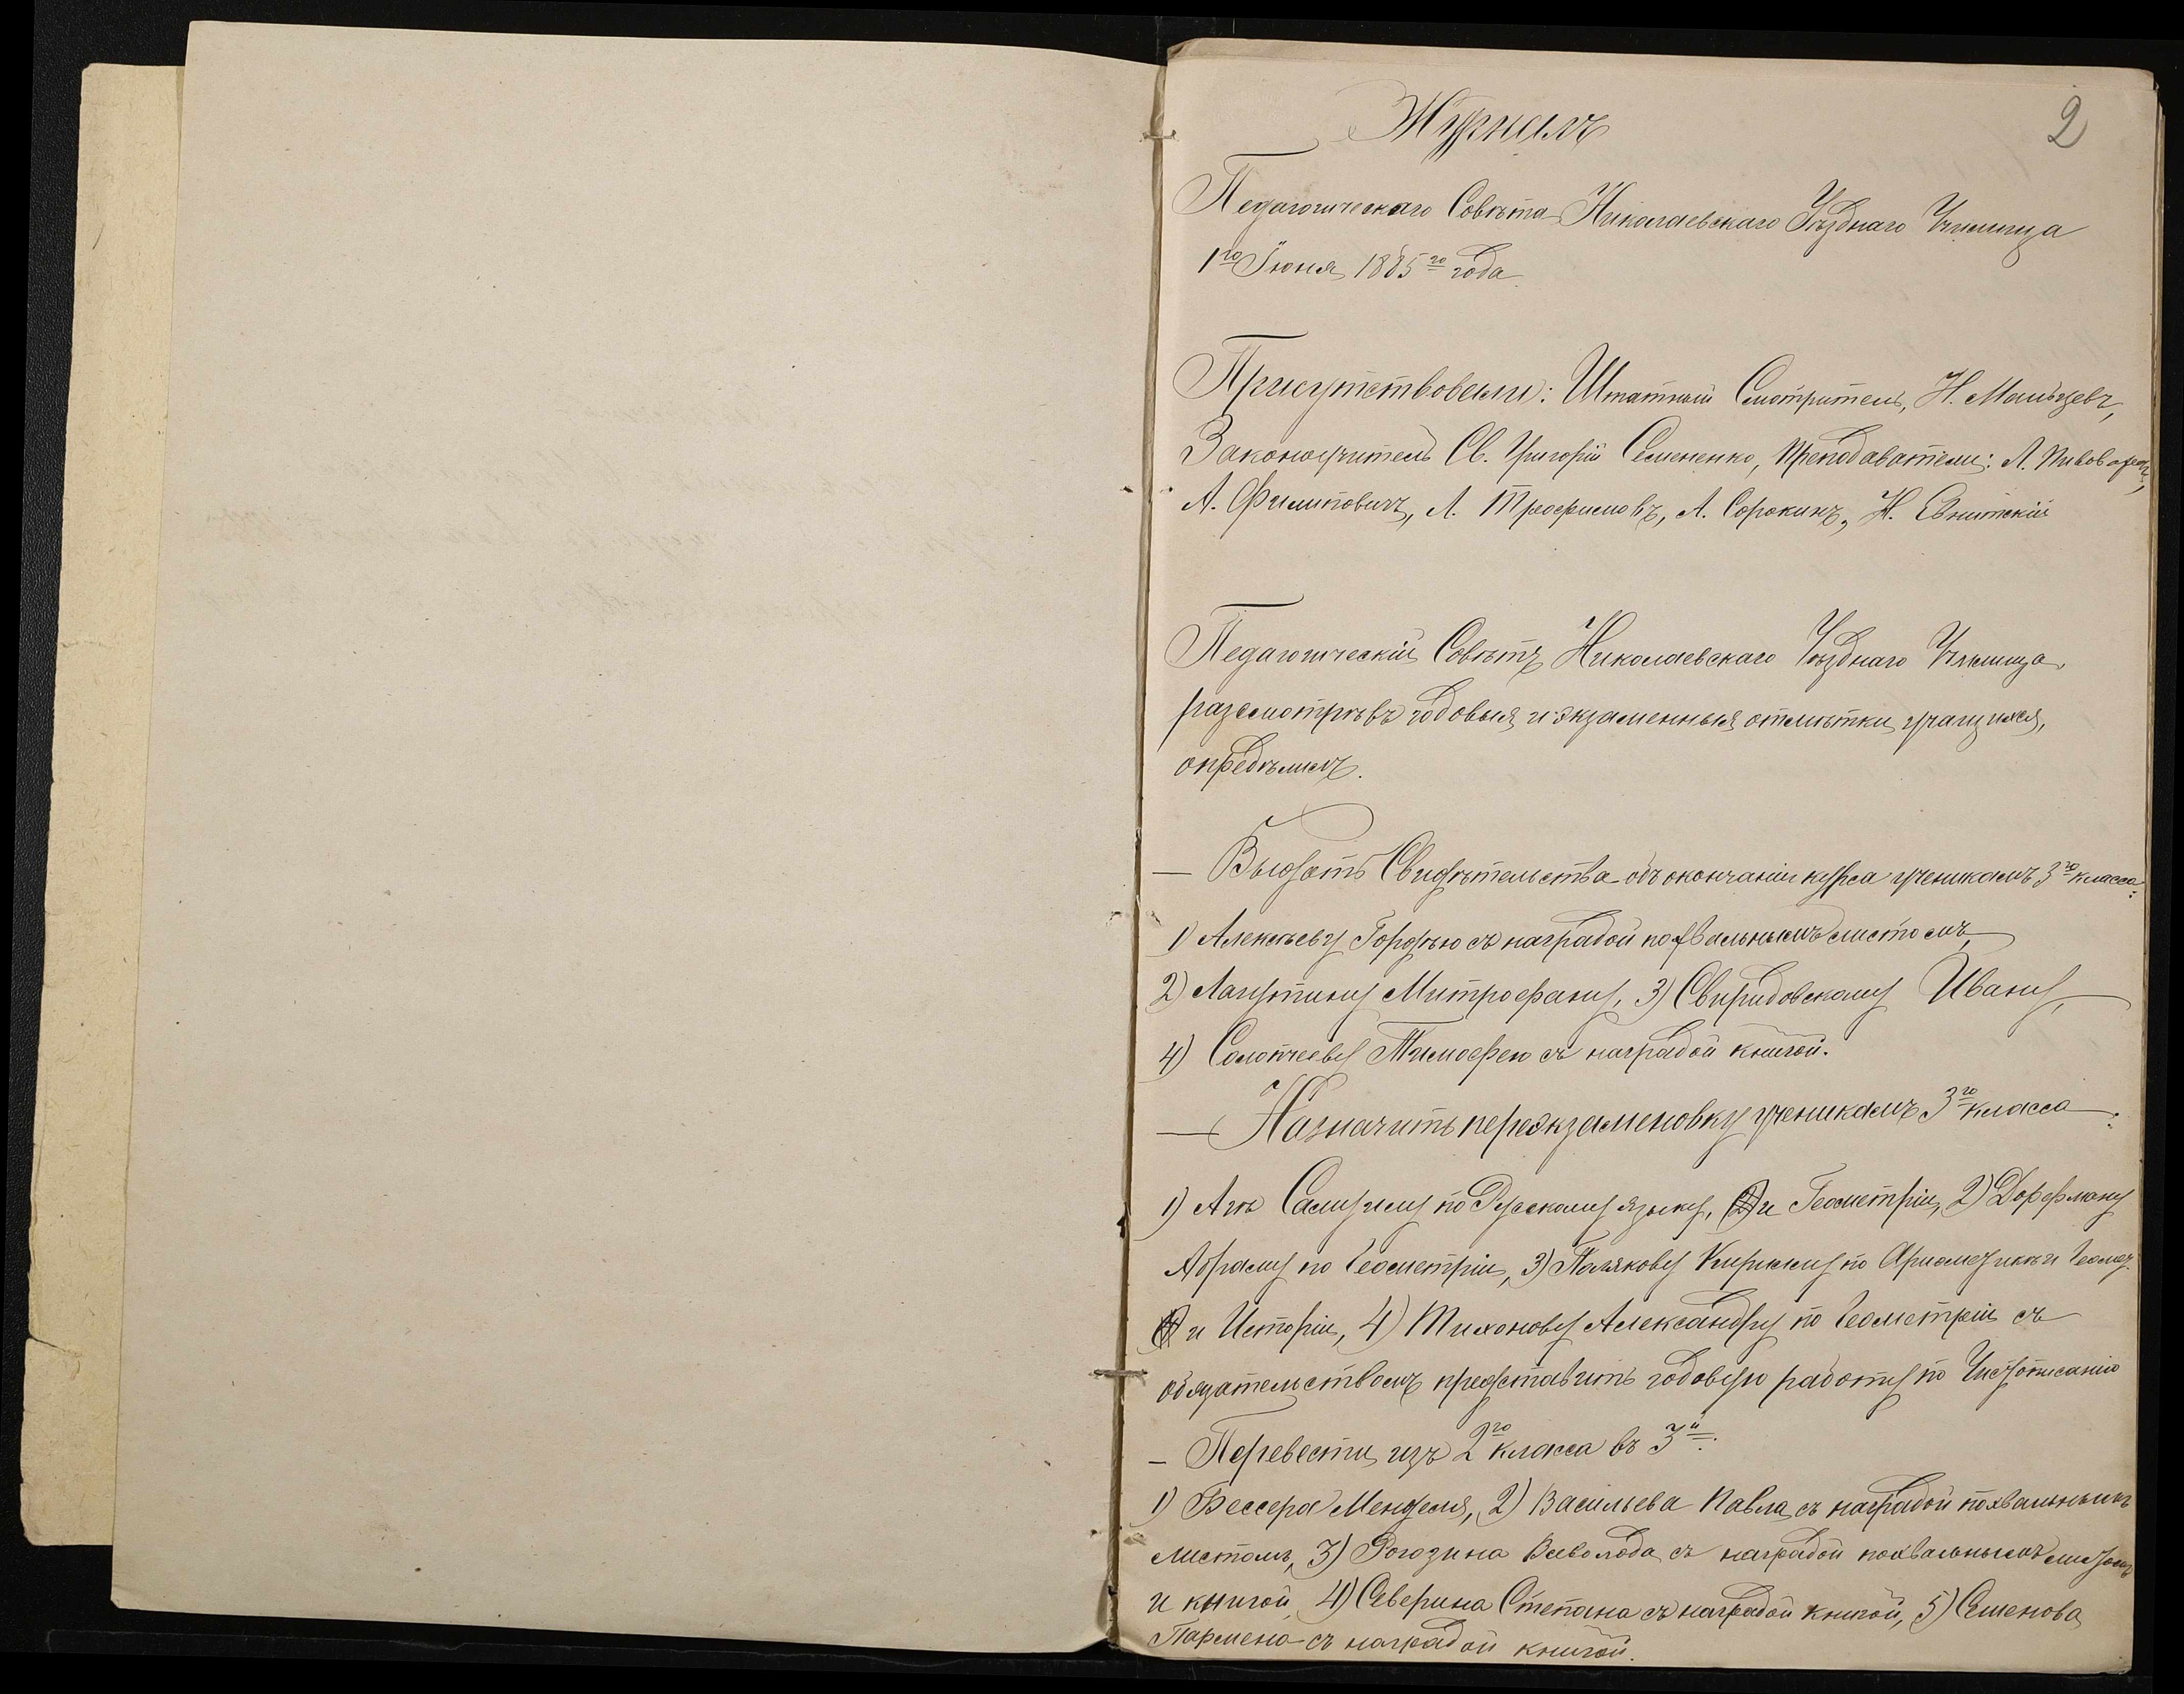 2
Журналъ
Педагогическаго Совѣта Николаевскаго Уѣзднаго Училища
1го Іюня 1885го года.
Присутствовали: Штатный Смотритель, Н. Мальцевъ,
Законоучитель Св. Григорій Семененко, преподаватели: Л. Пивоваръ,
А. Филиповичъ, А. Трофимовъ, А. Сорокинъ, Н.
Педагогическій Совѣтъ Николаевскаго Уѣзднаго Училища,
разсмотрѣвъ годовыя и экзаменныя отмѣтки учащихся,
опредѣлилъ.
— Выдать Свидѣтельства объ окончаніи курса ученикамъ 3го класса:
1) Алексѣеву Гордѣю съ наградой похвальнымъ листомъ,
2) Лагутину Митрофану, 3) Свиридовскому Ивану,
4) Солотчееву Тимофею съ наградой книгой.
— Назначить переэкзаменовку ученикамъ 3го класса:
1) Самуилу по Русскому языку, и Геометріи, 2) Дорфману
Абраму по Геометріи, 3) Полякову Кириллу по Ариѳметикѣ и Геомет.
и Исторіи, 4) Тихонову Александру по Геометріи съ
обязательствомъ представить годовую работу по Чистописанію
— Перевести изъ 2го класса въ 3й:
1) Бессера Менделя, 2) Васильева Павла съ наградой похвальнымъ
листомъ, 3) Рогозина Всеволода съ наградой похвальнымъ листомъ
и книгой, 4) Северина Степана съ наградой книгой, 5) Семенова
Пармена съ наградой книгой.